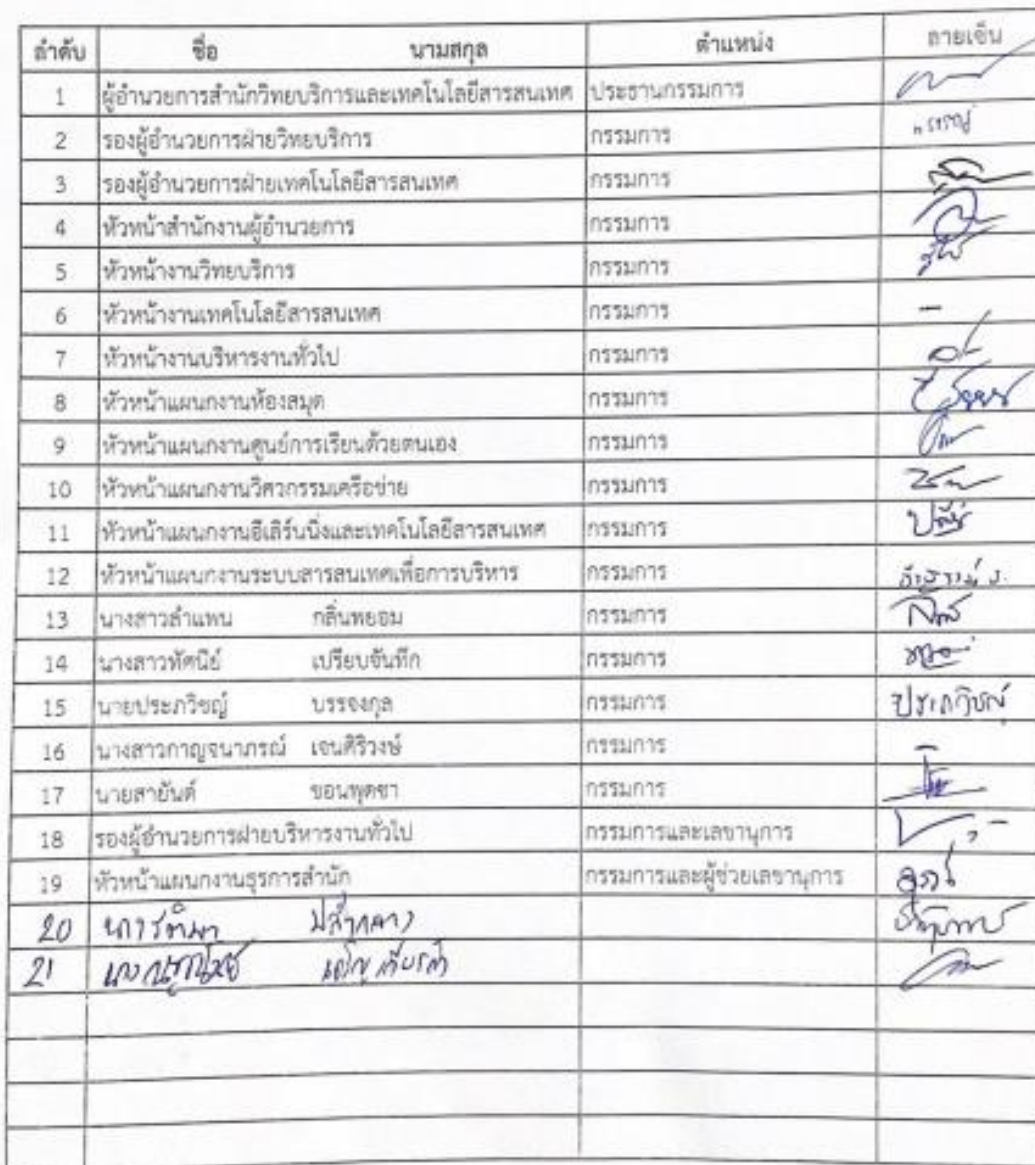 ลำดับ ชื่อ นามสกุล ตำแหน่ง ลายเซ็น
1 ผู้อำนวยการสำนักวิทยบริการและเทคโนโลยีสารสนเทศ ประธานกรรมการ
2 รองผู้อำนวยการฝ่ายวิทยบริการ กรรมการ
3 รองผู้อำนวยการฝ่ายเทคโนโลยีสารสนเทศ กรรมการ
4 หัวหน้าสำนักงานผู้อำนวยการ กรรมการ
5 หัวหน้างานวิทยบริการ กรรมการ
6 หัวหน้างานเทคโนโลยีสารสนเทศ กรรมการ -
7 หัวหน้างานบริหารงานทั่วไป กรรมการ
8 หัวหน้าแผนกงานห้องสมุด กรรมการ
9 หัวหน้าแผนกงานศูนย์การเรียนด้วยตนเอง กรรมการ
10 หัวหน้าแผนกงานวิศวกรรมเครือข่าย กรรมการ
11 หัวหน้าแผนกงานอีเลิร์นนิ่งและเทคโนโลยีสารสนเทศ กรรมการ
12 หัวหน้าแผนกงานระบบสารสนเทศเพื่อการบริหาร กรรมการ
13 นางสาวลำแพน กลิ่นพยอม กรรมการ
14 นางสาวทัศนีย์ เปรียบจันทึก กรรมการ
15 นายประภวิชญ์ บรรจงกุล กรรมการ ประภวิชญ์
16 นางสาวกาญจนาภรณ์ เจนศิริวงษ์ กรรมการ -
17 นายสายันต์ ขอนพุดซา กรรมการ
18 รองผู้อำนวยการฝ่ายบริหารงานทั่วไป กรรมการและเลขานุการ
19 หัวหน้าแผนกงานธุรการสำนัก กรรมการและผู้ช่วยเลขานุการ
20
21